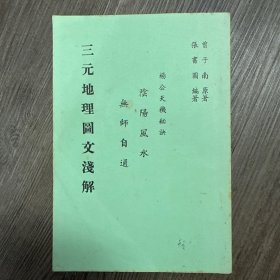 曾子南 原著
張書圖 編著
楊公天機秘訣
陰陽風水
無師自通
三元地理圖文淺解